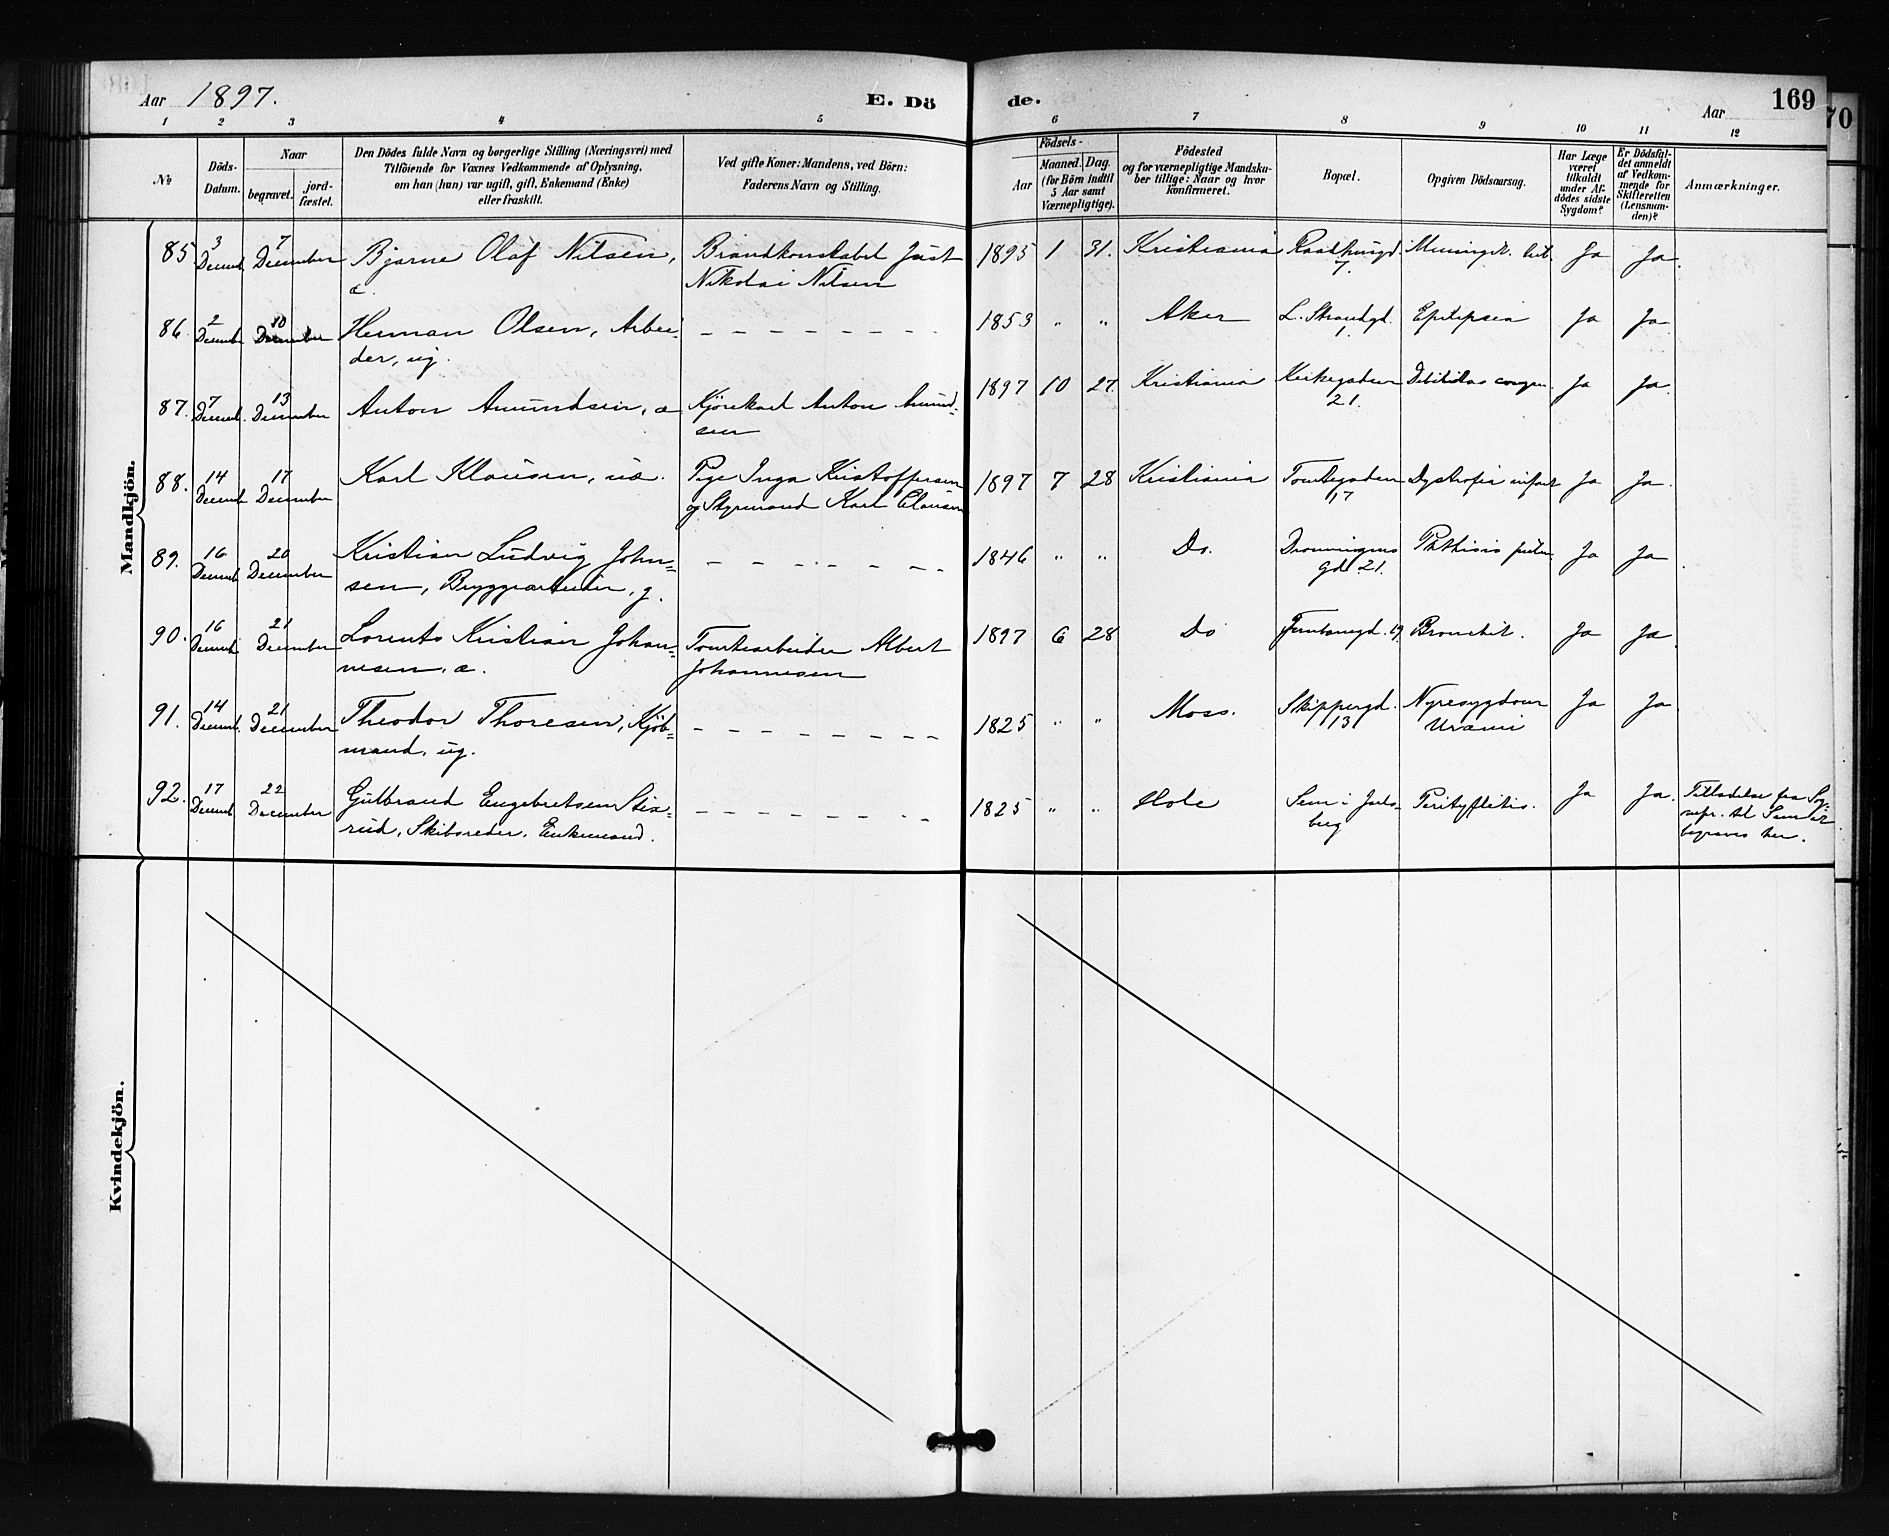 Aar 1897. E. Dö de. Aar 169
70
1 2 3 4 5 6 7 8 9 10 11 12
№
Döds-
Datum.
Naar
begravet.
jord-
fæstet.
Den Dödes fulde Navn og borgerlige Stilling (Næringsvei) med
Tilföiende for Voxnes Vedkommende af Oplysning,
om han (hun) var ugift, gift, Enkemand (Enke)
eller fraskilt.
Ved gifte Koner: Mandens, ved Börn:
Faderens Navn og Stilling.
Födsels-
Aar
Maaned. Dag.
(for Börn indtil
5 Aar samt
Værnepligtige).
Födested
og for værnepligtige Mandsku-
ber tillige: Naar og hvor
konfirmeret.
Bopæl.
Opgiven Dödsaarsag.
Har Læge
været
tilkaldt
under Af-
dödes sidste
Sygdom?
Er Dödsfal-
det anmeldt
af Vedkom-
mende for
Skifteretten
(Lensman-
den)?
Anmærkninger.
Mandkjön.
85 3 7 Bjarne Olaf Nilsen, Brandkonstabel Just 1895 1 31. Kristiania Raadhusgd. Meningit. tub. Ja Ja.
Decemb. December æ. Nikolai Nilsen 7.
86. 2 10 Herman Olsen, Arbei- 1853 " " Aker L. Strandgd. Epilepsia Ja Ja
Decemb December der, ug. 1.
87. 7 13 Anton Amundsen, æ Kjörekarl Anton Amund- 1897 10 27. Kristiania Kirkegaden Debilitas congen. Ja Ja.
Decemb. December sen 21.
88. 14 17 Karl Klausen, uæ. Pige Inga Kristoffersen 1897 7 28 Kristiania Tomtegaden Dystrofia infant Ja Ja.
Decemb December og Styrmand Karl Clausen 17
89. 16 20 Kristian Ludvig John- 1846 " " Do. Dronningens Phthisis pulm Ja Ja
Decemb. December sen, Bryggearbeider, g. gd 21.
90. 16 21 Lorents Kristian Johan- Tomtearbeider Albert 1897 6 28 Do Jernbanegd. 19. Bronchit. Ja Ja
Decemb. December nesen, æ. Johannesen
91. 14 21 Theodor Thoresen, Kjöb- 1825 " " Moss. Skippergd. Nyresygdom Ja Ja
Decemb. December mand, ug. 13 Uræmi
92. 17 22 Gulbrand Engebretsen Stix- 1825 " " Hole Sem i Jarls- Perityflitis. Ja Ja. Tilladelse fra Sog-
Decemb December rud, Skibsreder, Enkemand. berg nepr. til Sem at
begraves her.
Kvindekjön.